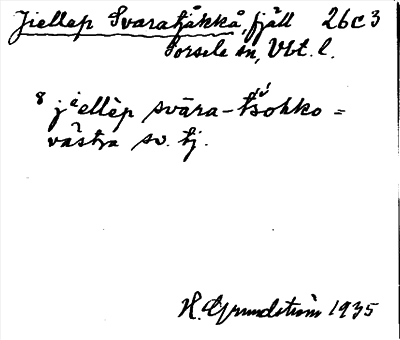 Jiellep Svaratjåkkå, fjäll 26c3
Sorsele sn, Vbt. l.
8 jiellèp svāra-tsohko =
västra sv. tj.
H. Grundström 1935